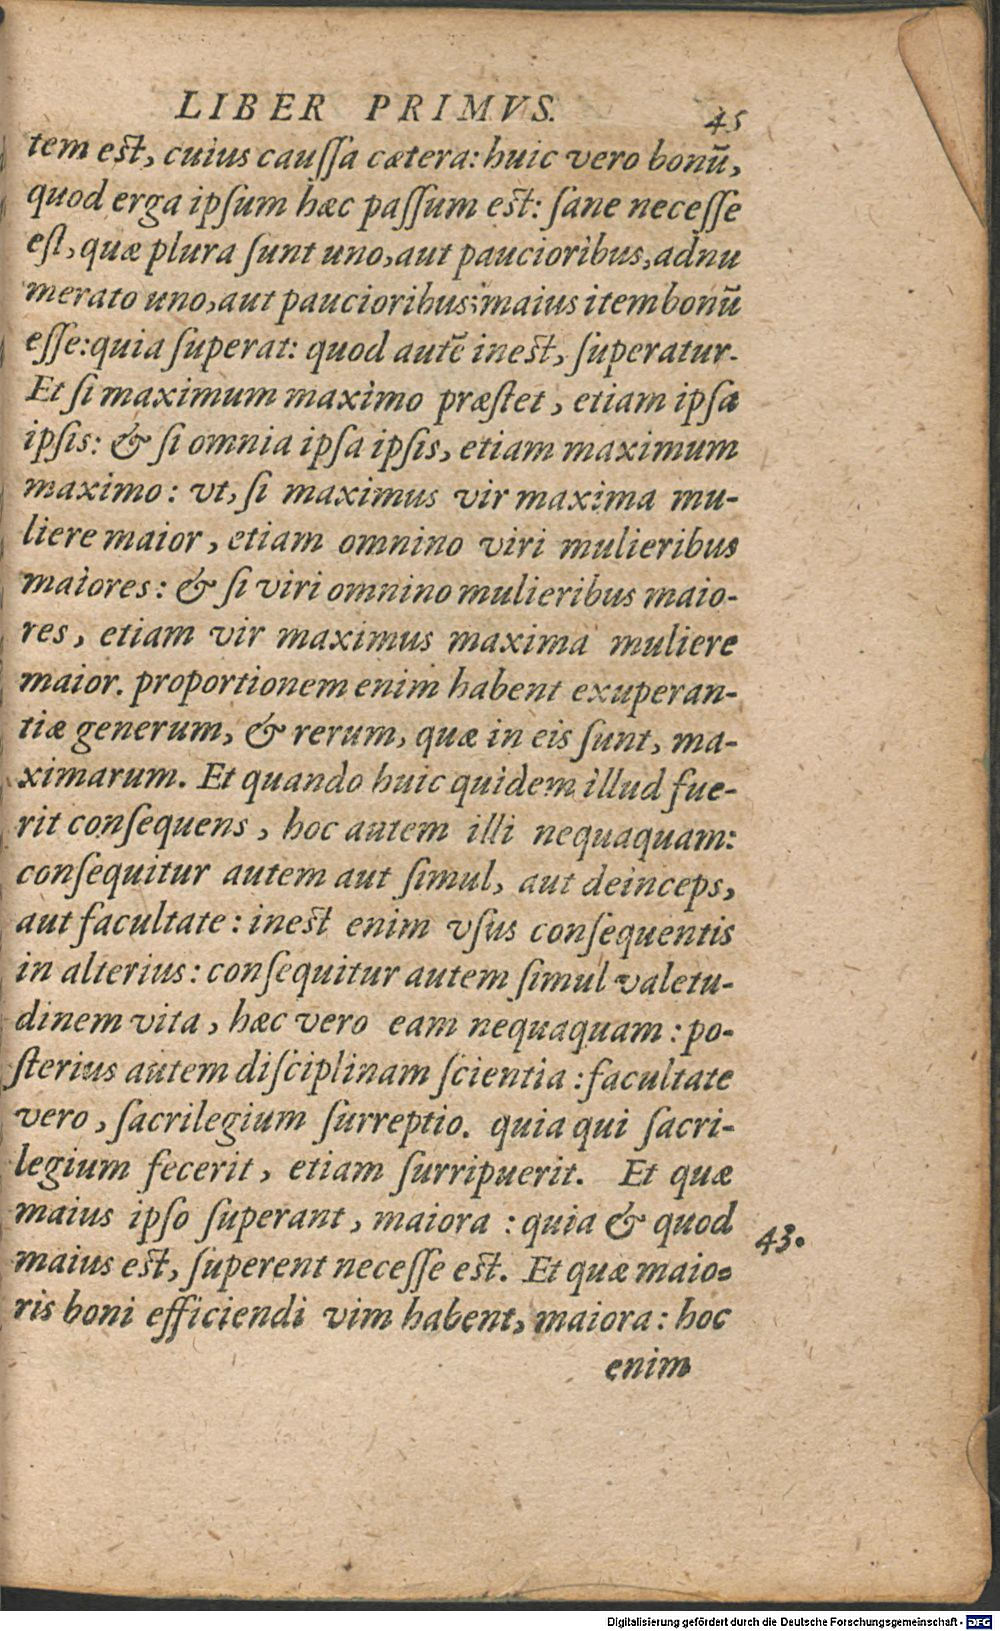 LIBER PRIMVS. 45
tem est, cuius cauſſa cætera: huic vero bonũ,
quod erga ipſum hæc paſſum est: ſane neceſſe
eſt, quæ plura ſunt uno, aut paucioribus, adnu
merato uno, aut paucioribus: maius item bonũ
eſſe: quia ſuperat: quod autẽ inest, ſuperatur.
Et ſi maximum maximo præſtet, etiam ipſa
ipſis: & ſi omnia ipſa ipſis, etiam maximum
maximo: vt, ſi maximus vir maxima mu-
liere maior, etiam omnino viri mulieribus
maiores: & ſi viri omnino mulieribus maio-
res, etiam vir maximus maxima muliere
maior. proportionem enim habent exuperan-
tiæ generum, & rerum, quæ in eis ſunt, ma-
ximarum. Et quando huic quidem illud fue-
rit conſequens, hoc autem illi nequaquam:
conſequitur autem aut ſimul, aut deinceps,
aut facultate: inest enim vſus conſequentis
in alterius: conſequitur autem ſimul valetu-
dinem vita, hæc vero eam nequaquam: po-
ſterius autem diſciplinam ſcientia: facultate
vero, ſacrilegium ſurreptio. quia qui ſacri-
legium fecerit, etiam ſurripuerit. Et quæ
maius ipſo ſuperant, maiora: quia & quod
43.
maius est, ſuperent neceſſe est. Et quæ maio-
ris boni efficiendi vim habent, maiora: hoc
enim
Digitalisierung gefördert durch die Deutsche Forschungsgemeinschaft - DFG